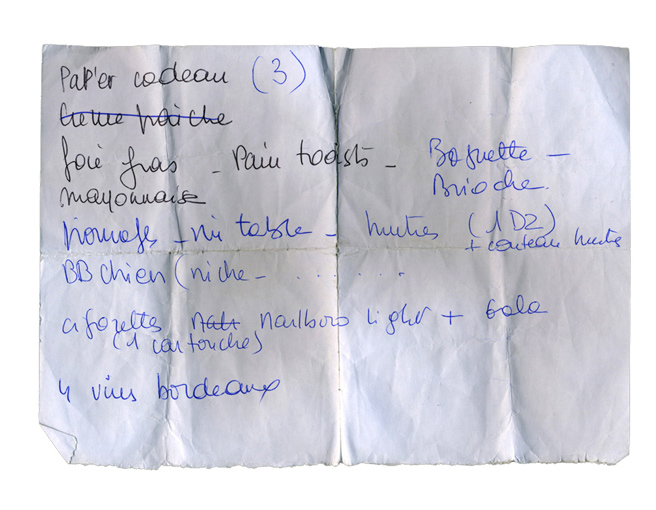 Papier cadeau (3)
Creme fraiche
foie gras - Pain toasts - Baguette -
Brioche.
mayonnaise
fromages - vin table - huitres (1 DZ)
+ couteau huitres
BB chien (niche - . . . . . .
cigarettes Malb Marlboro Light + Gala
(1 cartouche)
4 vins bordeaux